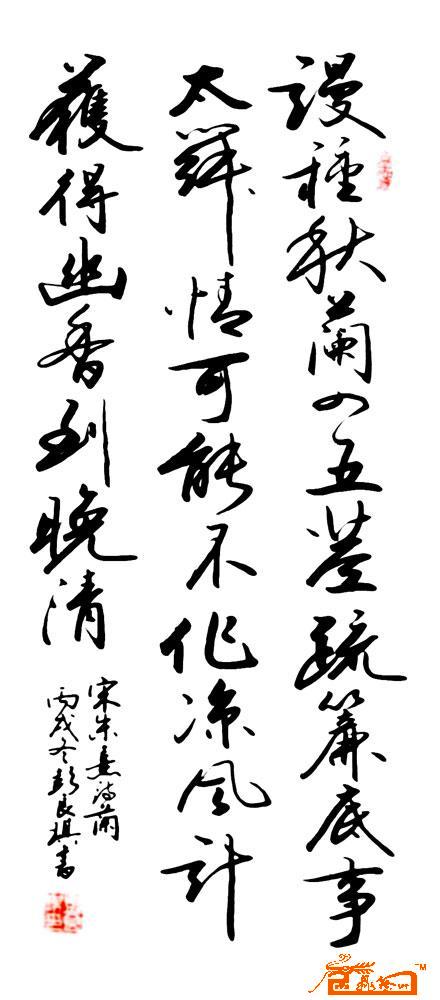 謾種秋蘭四五莖疏簾底事
太關情可能不作凉風計
獲得幽香到晚清
宋朱熹詩蘭
丙戌冬彭良棋書